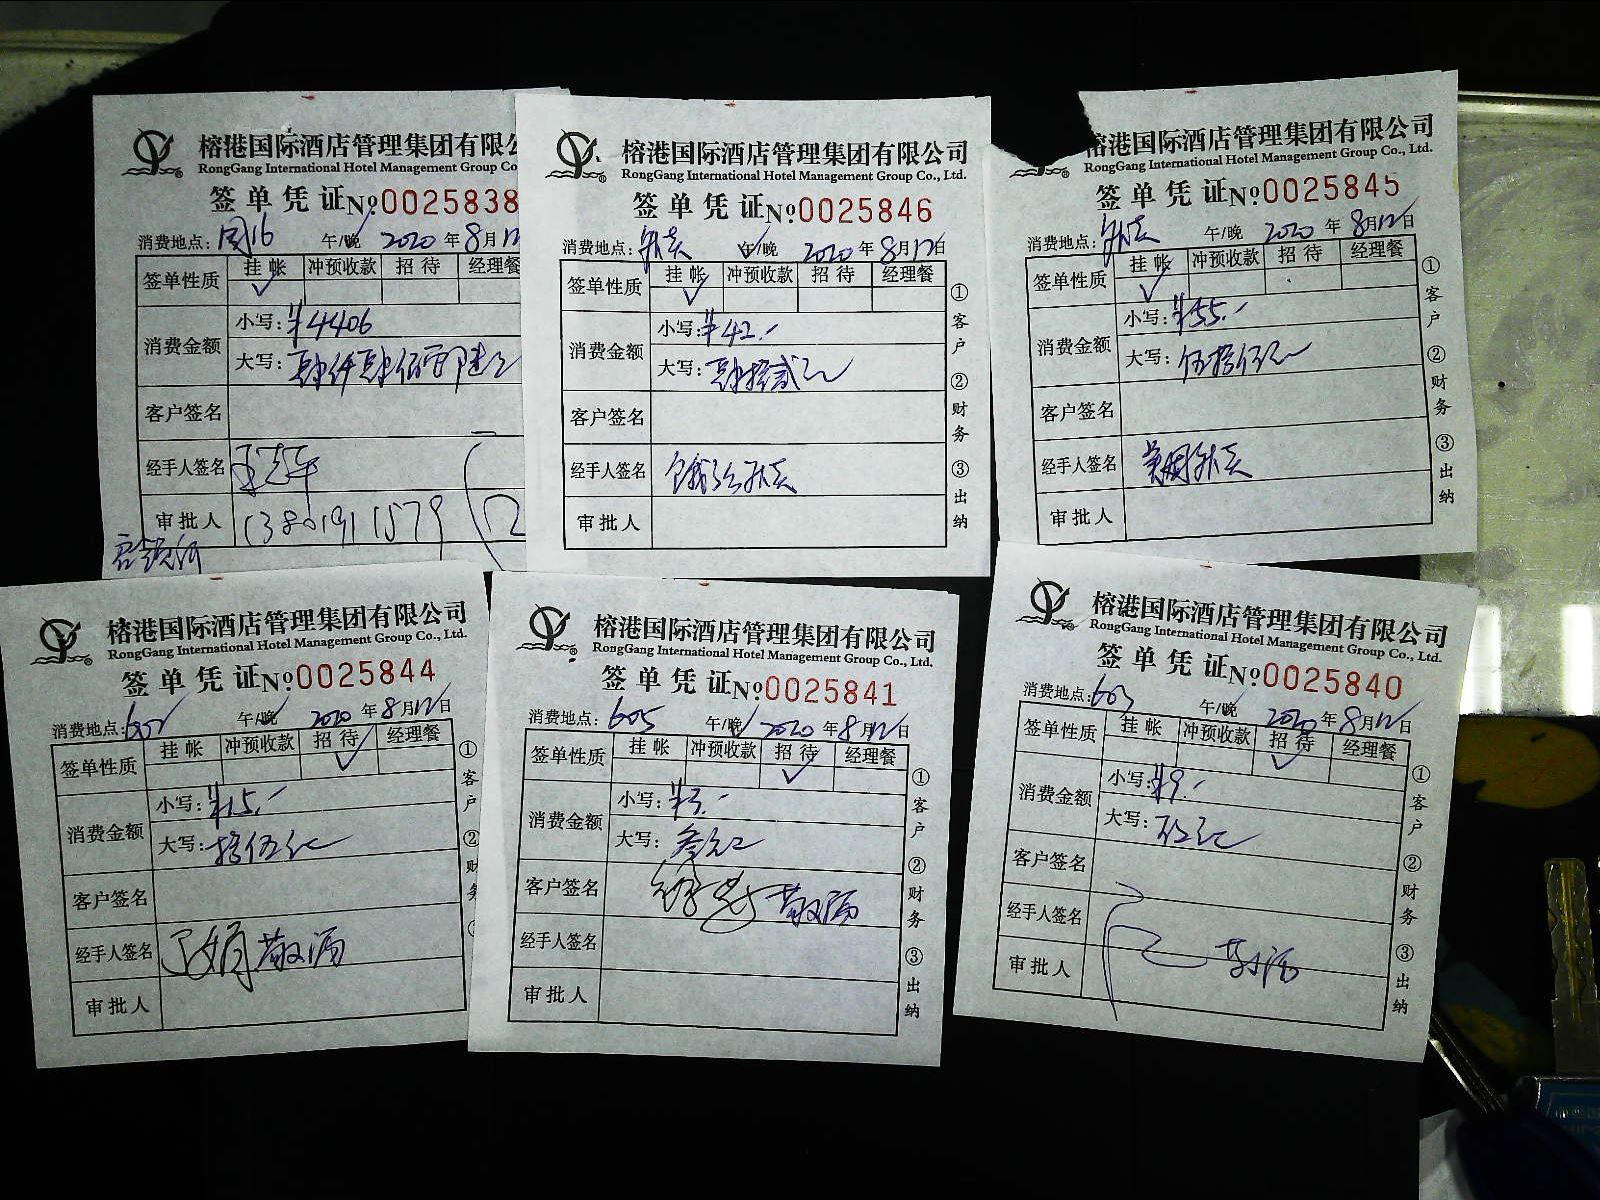 榕港国际酒店管理集团有限公
RongGang International Hotel Management Group Co
签单凭证 №0025838
消费地点: 风16 午/晚 2020年8月12
签单性质 挂帐 冲预收款 招待 经理餐
消费金额 小写: ¥4406
大写: 肆仟肆佰零陆元
客户签名
经手人签名
审批人 13801911579
榕港国际酒店管理集团有限公司
RongGang International Hotel Management Group Co., Ltd.
签单凭证 №0025846
消费地点: 外卖 午/晚 2020年8月12日
签单性质 挂帐 冲预收款 招待 经理餐
消费金额 小写: ¥42.-
大写: 肆拾贰元
客户签名
经手人签名 饿了么外卖
审批人
①客户 ②财务 ③出纳
榕港国际酒店管理集团有限公司
RongGang International Hotel Management Group Co., Ltd.
签单凭证 №0025845
消费地点: 外卖 午/晚 2020年8月12日
签单性质 挂帐 冲预收款 招待 经理餐
消费金额 小写: ¥55.-
大写: 伍拾伍元
客户签名
经手人签名 美团外卖
审批人
①客户 ②财务 ③出纳
榕港国际酒店管理集团有限公司
RongGang International Hotel Management Group Co., Ltd.
签单凭证 №0025844
消费地点: 602 午/晚 2020年8月12日
签单性质 挂帐 冲预收款 招待 经理餐
消费金额 小写: ¥15.-
大写: 拾伍元
客户签名
经手人签名 敬酒
审批人
①客户 ②财务
榕港国际酒店管理集团有限公司
RongGang International Hotel Management Group Co., Ltd.
签单凭证 №0025841
消费地点: 605 午/晚 2020年8月12日
签单性质 挂帐 冲预收款 招待 经理餐
消费金额 小写: ¥3.-
大写: 叁元
客户签名 敬酒
经手人签名
审批人
①客户 ②财务 ③出纳
榕港国际酒店管理集团有限公司
RongGang International Hotel Management Group Co., Ltd.
签单凭证 №0025840
消费地点: 603 午/晚 2020年8月12日
签单性质 挂帐 冲预收款 招待 经理餐
消费金额 小写: ¥9.-
大写: 玖元
客户签名
经手人签名
审批人 敬酒
①客户 ②财务 ③出纳